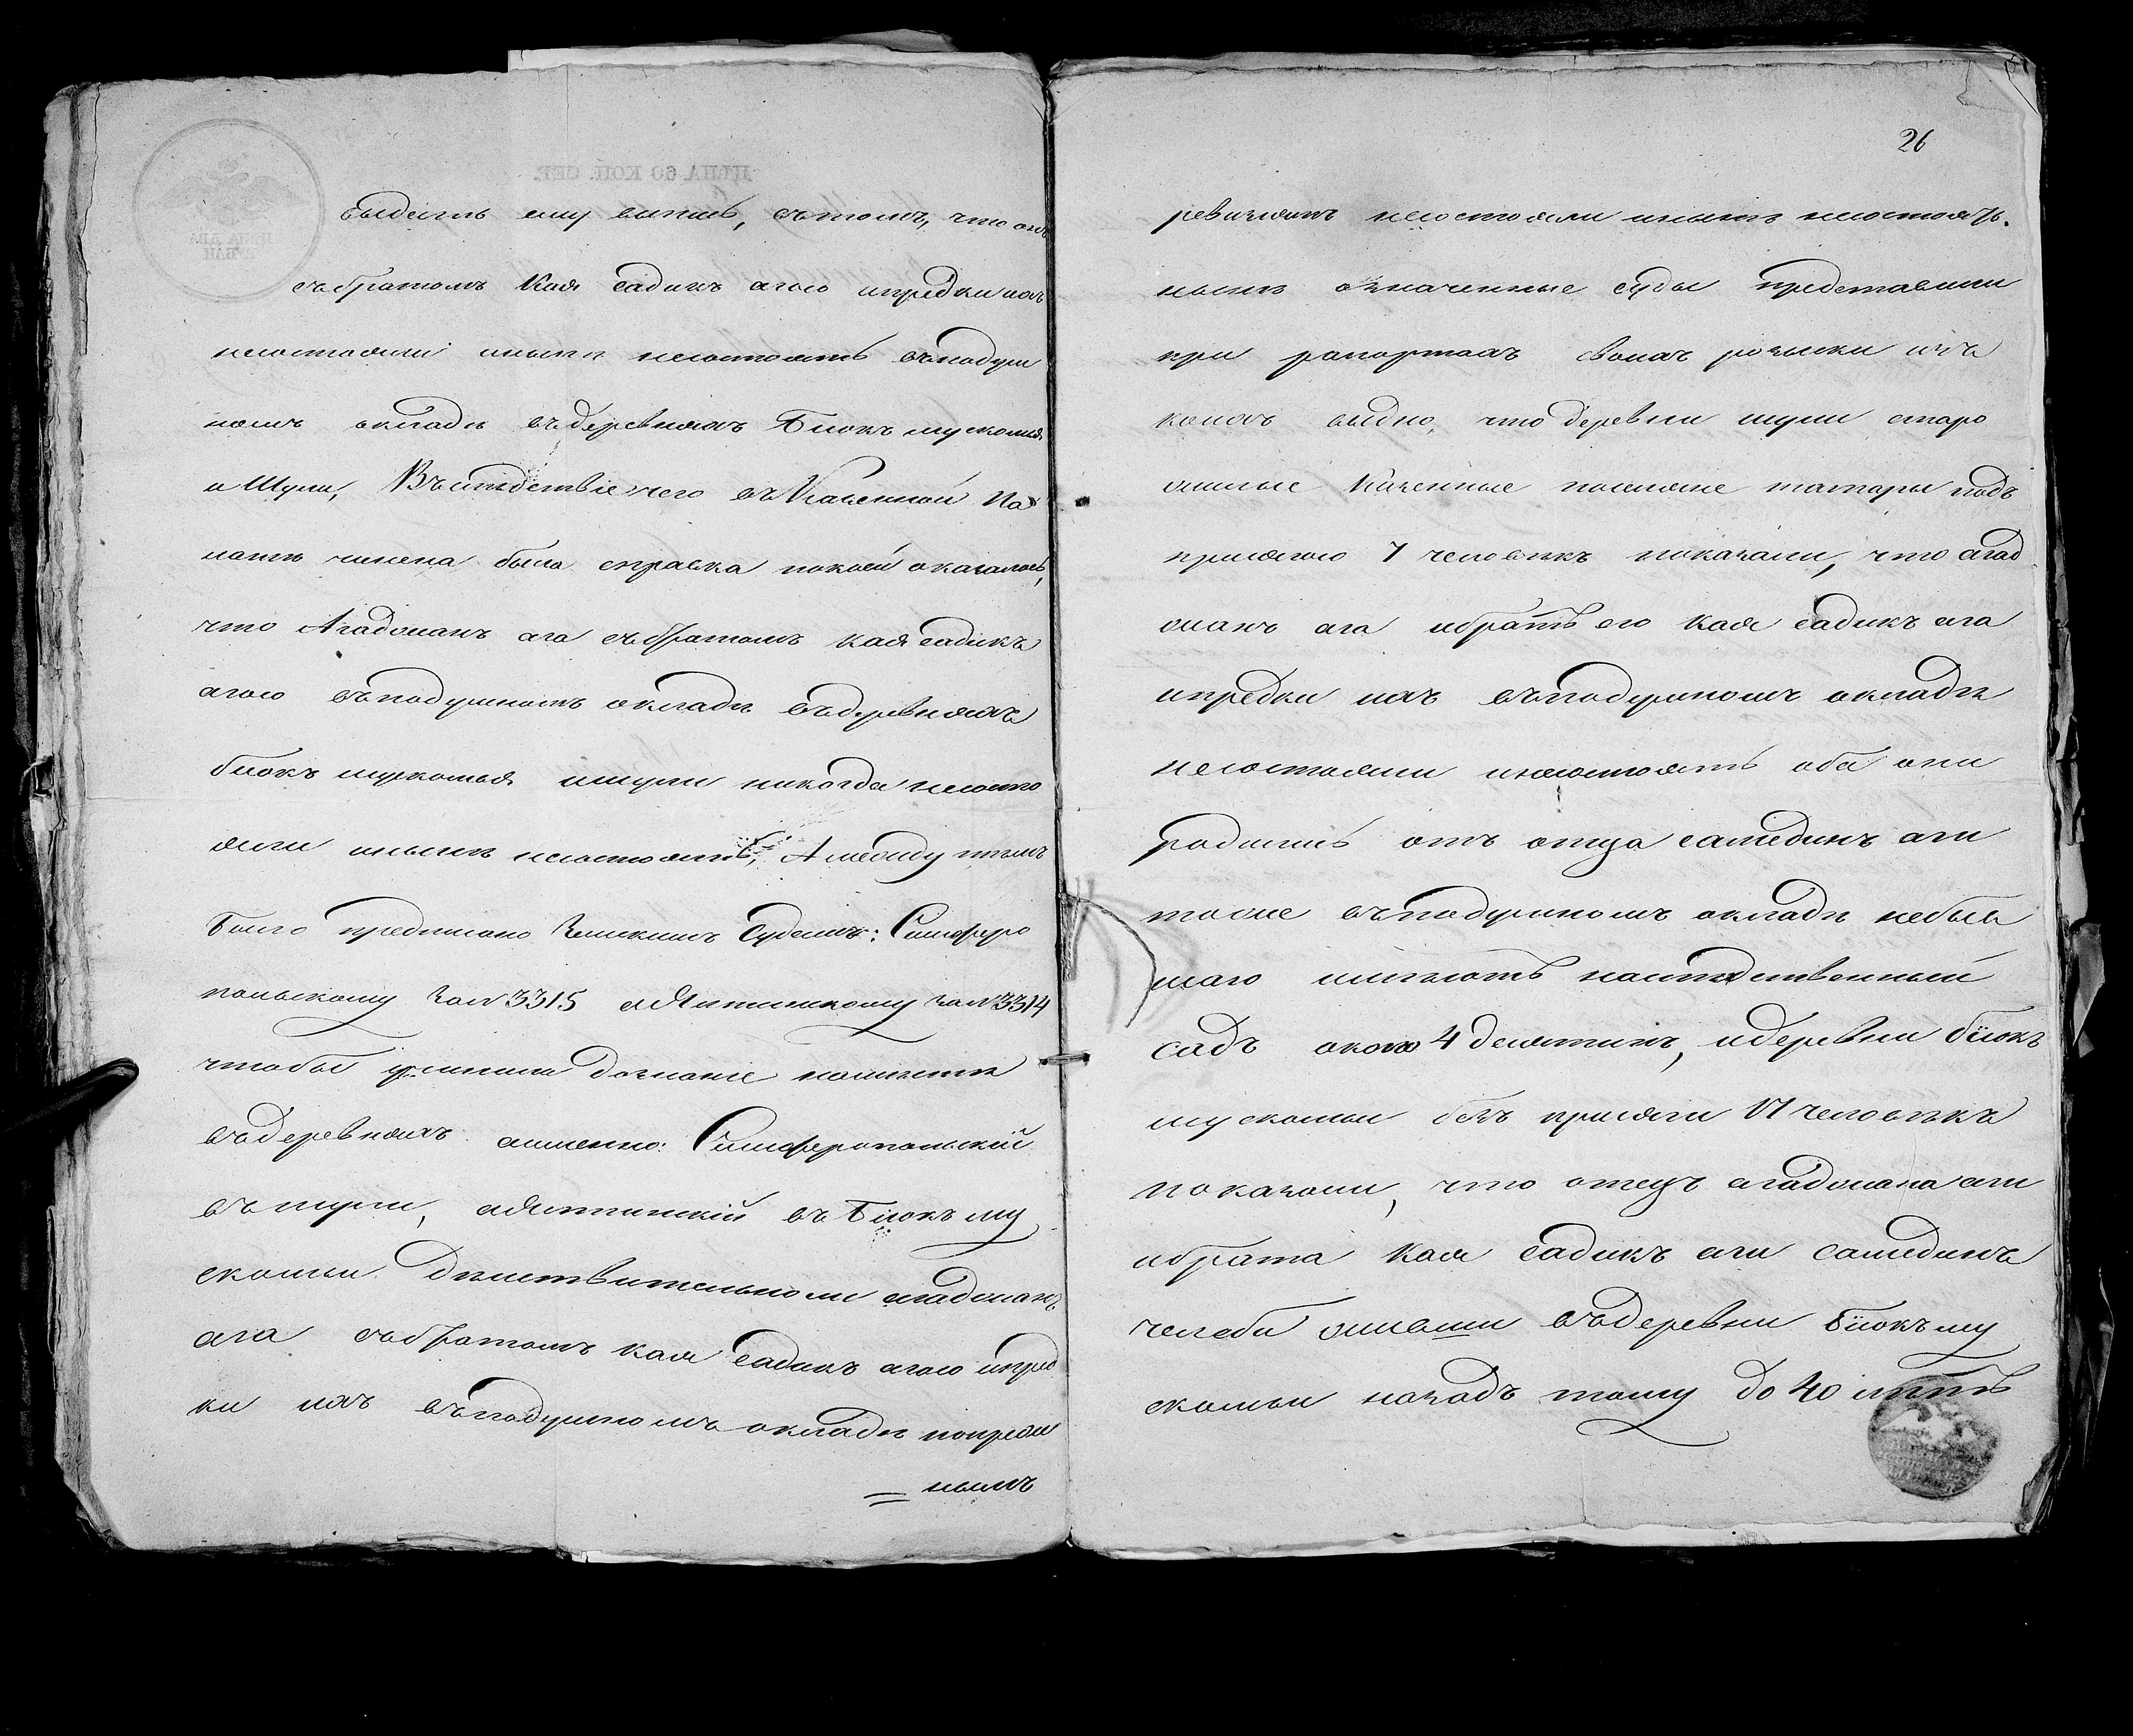 ЦѢНА 60 КОП. СЕР.
выдать ему видъ, въ томъ, что онъ
съ братомъ Кая Садыкъ агою ипредки ихъ
несостояли инынѣ несостоятъ въ подуш
номъ окладѣ въ деревняхъ Біюкъ мускомья
и Шули, Въслѣдствіе чего въ Казенной Па
латѣ чинена была справка покоей оказалось,
что Агадоманъ ага съ братомъ Кая Садыкъ
агою въ подушномъ окладѣ въ деревняхъ
біюкъ мускомья ишули никогда несосто
яли инынѣ несостоятъ, А между тѣмъ
было предписано Земскимъ Судамъ: Симферо
польскому за № 3315 а Ялтинскому за № 3314
чтобы учинили дознаніе намѣстѣ
въ деревняхъ аименно: Симферопольскій
въ шули, а Ялтинскій въ Біюкъ му
скомьи дѣйствительноли агадоманъ
ага съ братомъ Кая Садыкъ агою ипред
ки ихъ въ подушномъ окладѣ попреж
= нымъ
26
ревизіямъ несостояли инынѣ несостоятъ.
нынѣ означенные суды представили
при рапортахъ своихъ розыски изъ
коихъ видно, что деревни шули старо
жилые Казенные поселяне татары подъ
присягою 7 человѣкъ показали, что агад
оманъ ага ибратъ его Кая Садыкъ ага
ипредки ихъ въ подушномъ окладѣ
несостояли инесостоятъ оба они
родились отъ отца Самединъ аги
тоже въ подушномъ окладѣ небыв
шаго имѣютъ наслѣдственный
садъ около 4 десятинъ, идеревни біюкъ
мускомьи безъ присяги 11 человѣкъ
показали, что отецъ агадомана аги
ибрата Кая Садыкъ аги Самединъ
челеби жившій въ деревни біюкъ му
скомьи назадъ тому до 40 лѣтъ